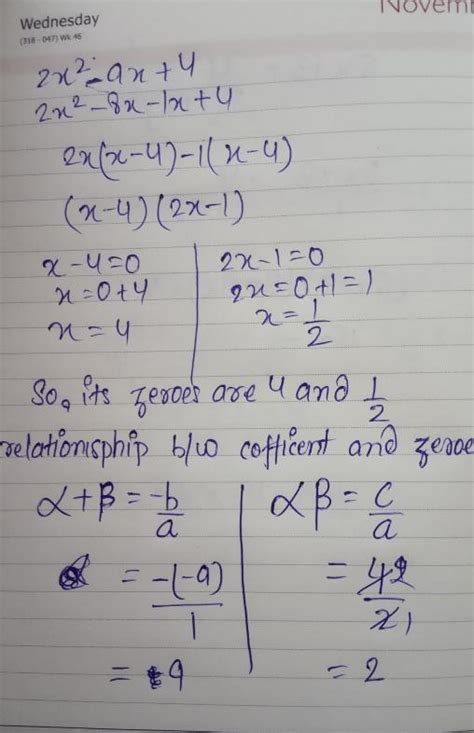 Novem
Wednesday
(318 - 047) Wk 46
2x² - 9x + 4
2x² - 8x - 1x + 4
2x(x-4) - 1(x-4)
(x-4) (2x-1)
x - 4 = 0
x = 0 + 4
x = 4
2x - 1 = 0
2x = 0 + 1 = 1
x = 1/2
So, its zeroes are 4 and 1/2
relationisphip b/w cofficent and zeroe
α + β = -b/a
= -(-9)/1
= 9
αβ = c/a
= 42/21
= 2